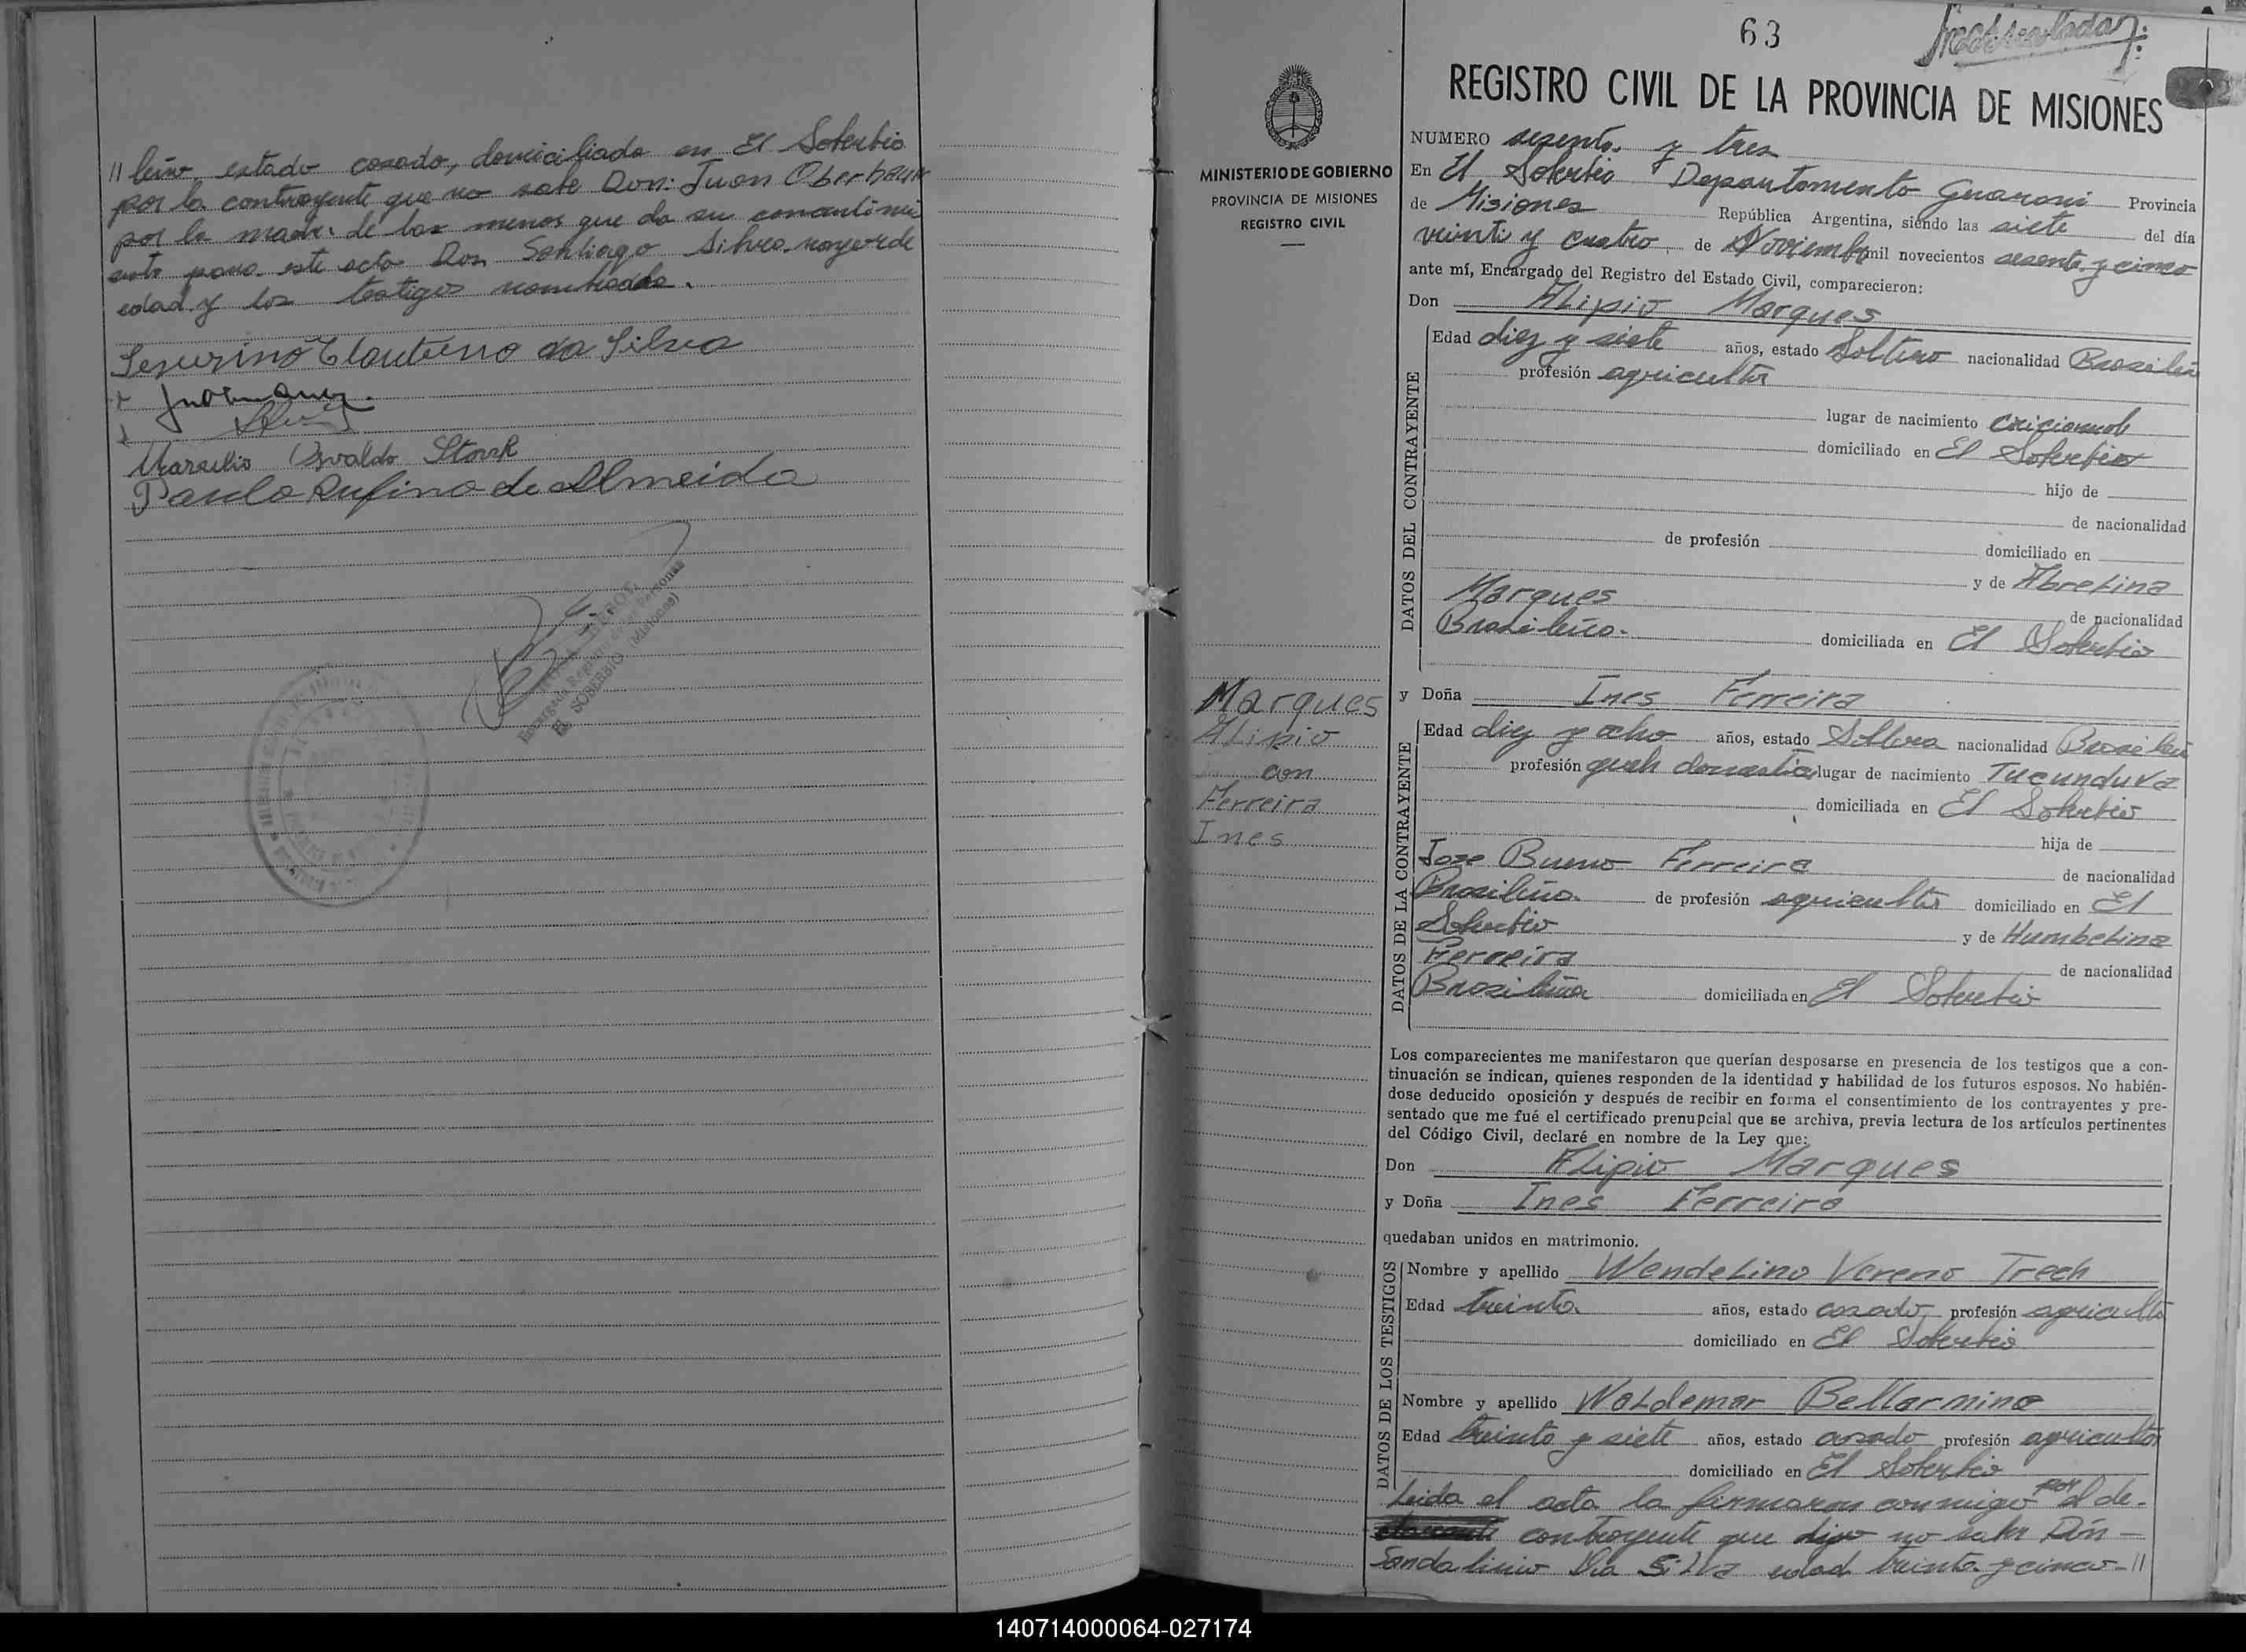 // leño, estado casado, domiciliado en El Soberbio
por la contrayente que no sabe Don: Juan Oberhaus
por la madre de los menor que da su
para este acto Don Santiago Silva mayor de
edad y los testigos nombrados.
Severino Clautino da Silva
Marcilio Osvaldo Stork
Paulo Rufino de Almeida
EL SOBERBIO (Misiones)
63
REGISTRO CIVIL DE LA PROVINCIA DE MISIONES
MINISTERIO DE GOBIERNO
PROVINCIA DE MISIONES
REGISTRO CIVIL
NUMERO sesenta y tres
En El Soberbio Departamento Guarani Provincia
de Misiones República Argentina, siendo las siete del día
veinti y cuatro de Noviembre mil novecientos sesenta y cinco
ante mí, Encargado del Registro del Estado Civil, comparecieron:
Don Alipio Marques
DATOS DEL CONTRAYENTE
Edad diez y siete años, estado Soltero nacionalidad Brasileña
profesión agricultor
lugar de nacimiento
domiciliado en El Soberbio
hijo de
de nacionalidad
de profesión domiciliado en
y de Abrelina
Marques de nacionalidad
Brasileña. domiciliada en El Soberbio
Marques
Alipio
con
Ferreira
Ines
y Doña Ines Ferreira
DATOS DE LA CONTRAYENTE
Edad diez y ocho años, estado Soltera nacionalidad Brasileña
profesión queh domesticos lugar de nacimiento Tucunduva
domiciliada en El Soberbio
hija de
Jose Bueno Ferreira de nacionalidad
Brasileña de profesión agricultor domiciliado en El
Soberbio y de Humbelina
Ferreira de nacionalidad
Brasileña domiciliada en El Soberbio
Los comparecientes me manifestaron que querían desposarse en presencia de los testigos que a con-
tinuación se indican, quienes responden de la identidad y habilidad de los futuros esposos. No habién-
dose deducido oposición y después de recibir en forma el consentimiento de los contrayentes y pre-
sentado que me fué el certificado prenupcial que se archiva, previa lectura de los artículos pertinentes
del Código Civil, declaré en nombre de la Ley que:
Don Alipio Marques
y Doña Ines Ferreira
quedaban unidos en matrimonio.
DATOS DE LOS TESTIGOS
Nombre y apellido Wendelino Vereno Trech
Edad treinta años, estado casado profesión agricultor
domiciliado en El Soberbio
Nombre y apellido Waldemar Bellarmino
Edad treinta y siete años, estado casado profesión agricultor
domiciliado en El Soberbio
Leida el acta la firmaron conmigo por el de-
contrayente que dijo no saber Don
Sandalinio Da Silva edad treinta y cinco //
140714000064-027174